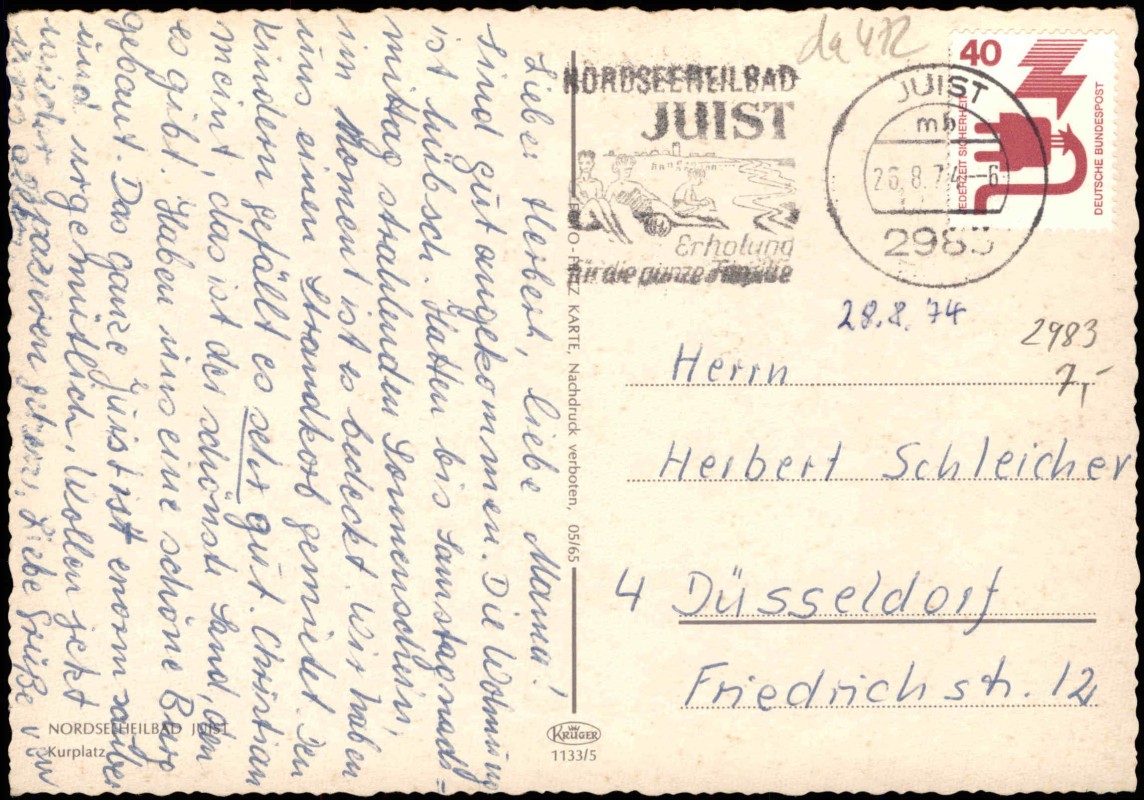 Lieber Herbert, liebe Mama!
Sind gut angekommen. Die Wohnung
ist hübsch. Hatten bis Samstagnach=
mittag strahlenden Sonnenschein,
im Moment ist es bedeckt. Wir haben
uns einen Strandkorb gemietet. Den
Kindern gefällt es sehr gut. Christian
meint, das ist das schönste Land, den
es gibt. Haben uns eine schöne Burg
gebaut. Das ganze Juist ist enorm sauber
und urgemütlich. Wollen jetzt
wieder spazieren gehen. Liebe Grüße von
uns allen
NORDSEEHEILBAD JUIST
Kurplatz
FOTO-PRITZ KARTE, Nachdruck verboten, 05/65
KRÜGER
1133/5
da 472
NORDSEEHEILBAD
JUIST
Erholung
für die ganze Familie
JUIST
mb
26.8.74--6
2983
40
JEDERZEIT SICHERHEIT
DEUTSCHE BUNDESPOST
28.8.'74
2983
7,-
Herrn
Herbert Schleicher
4 Düsseldorf
Friedrichstr. 12